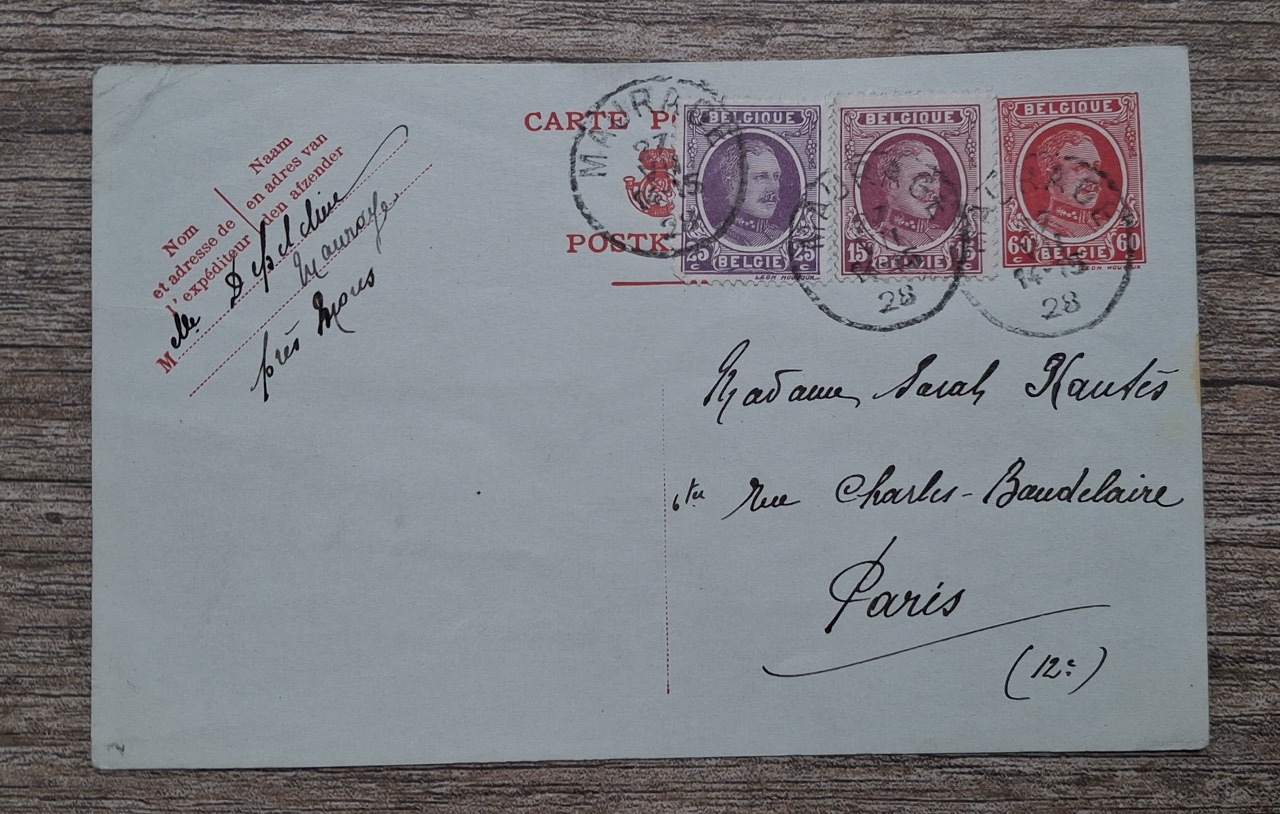 Nom
et adresse de
l'expéditeur
Naam
en adres van
den afzender
M elle
près Mons
CARTE PO
POSTK
MAURAGE
14-15
28
BELGIQUE
25 BELGIE 25
c c
LEON HOUYOUX
BELGIQUE
15 BELGIE 15
c c
MAURAGE
28
BELGIQUE
60 BELGIE 60
c c
LEON HOUYOUX
MAURAGE
14-15
28
Madame Sarah
rue Charles-Baudelaire
Paris
(12e)